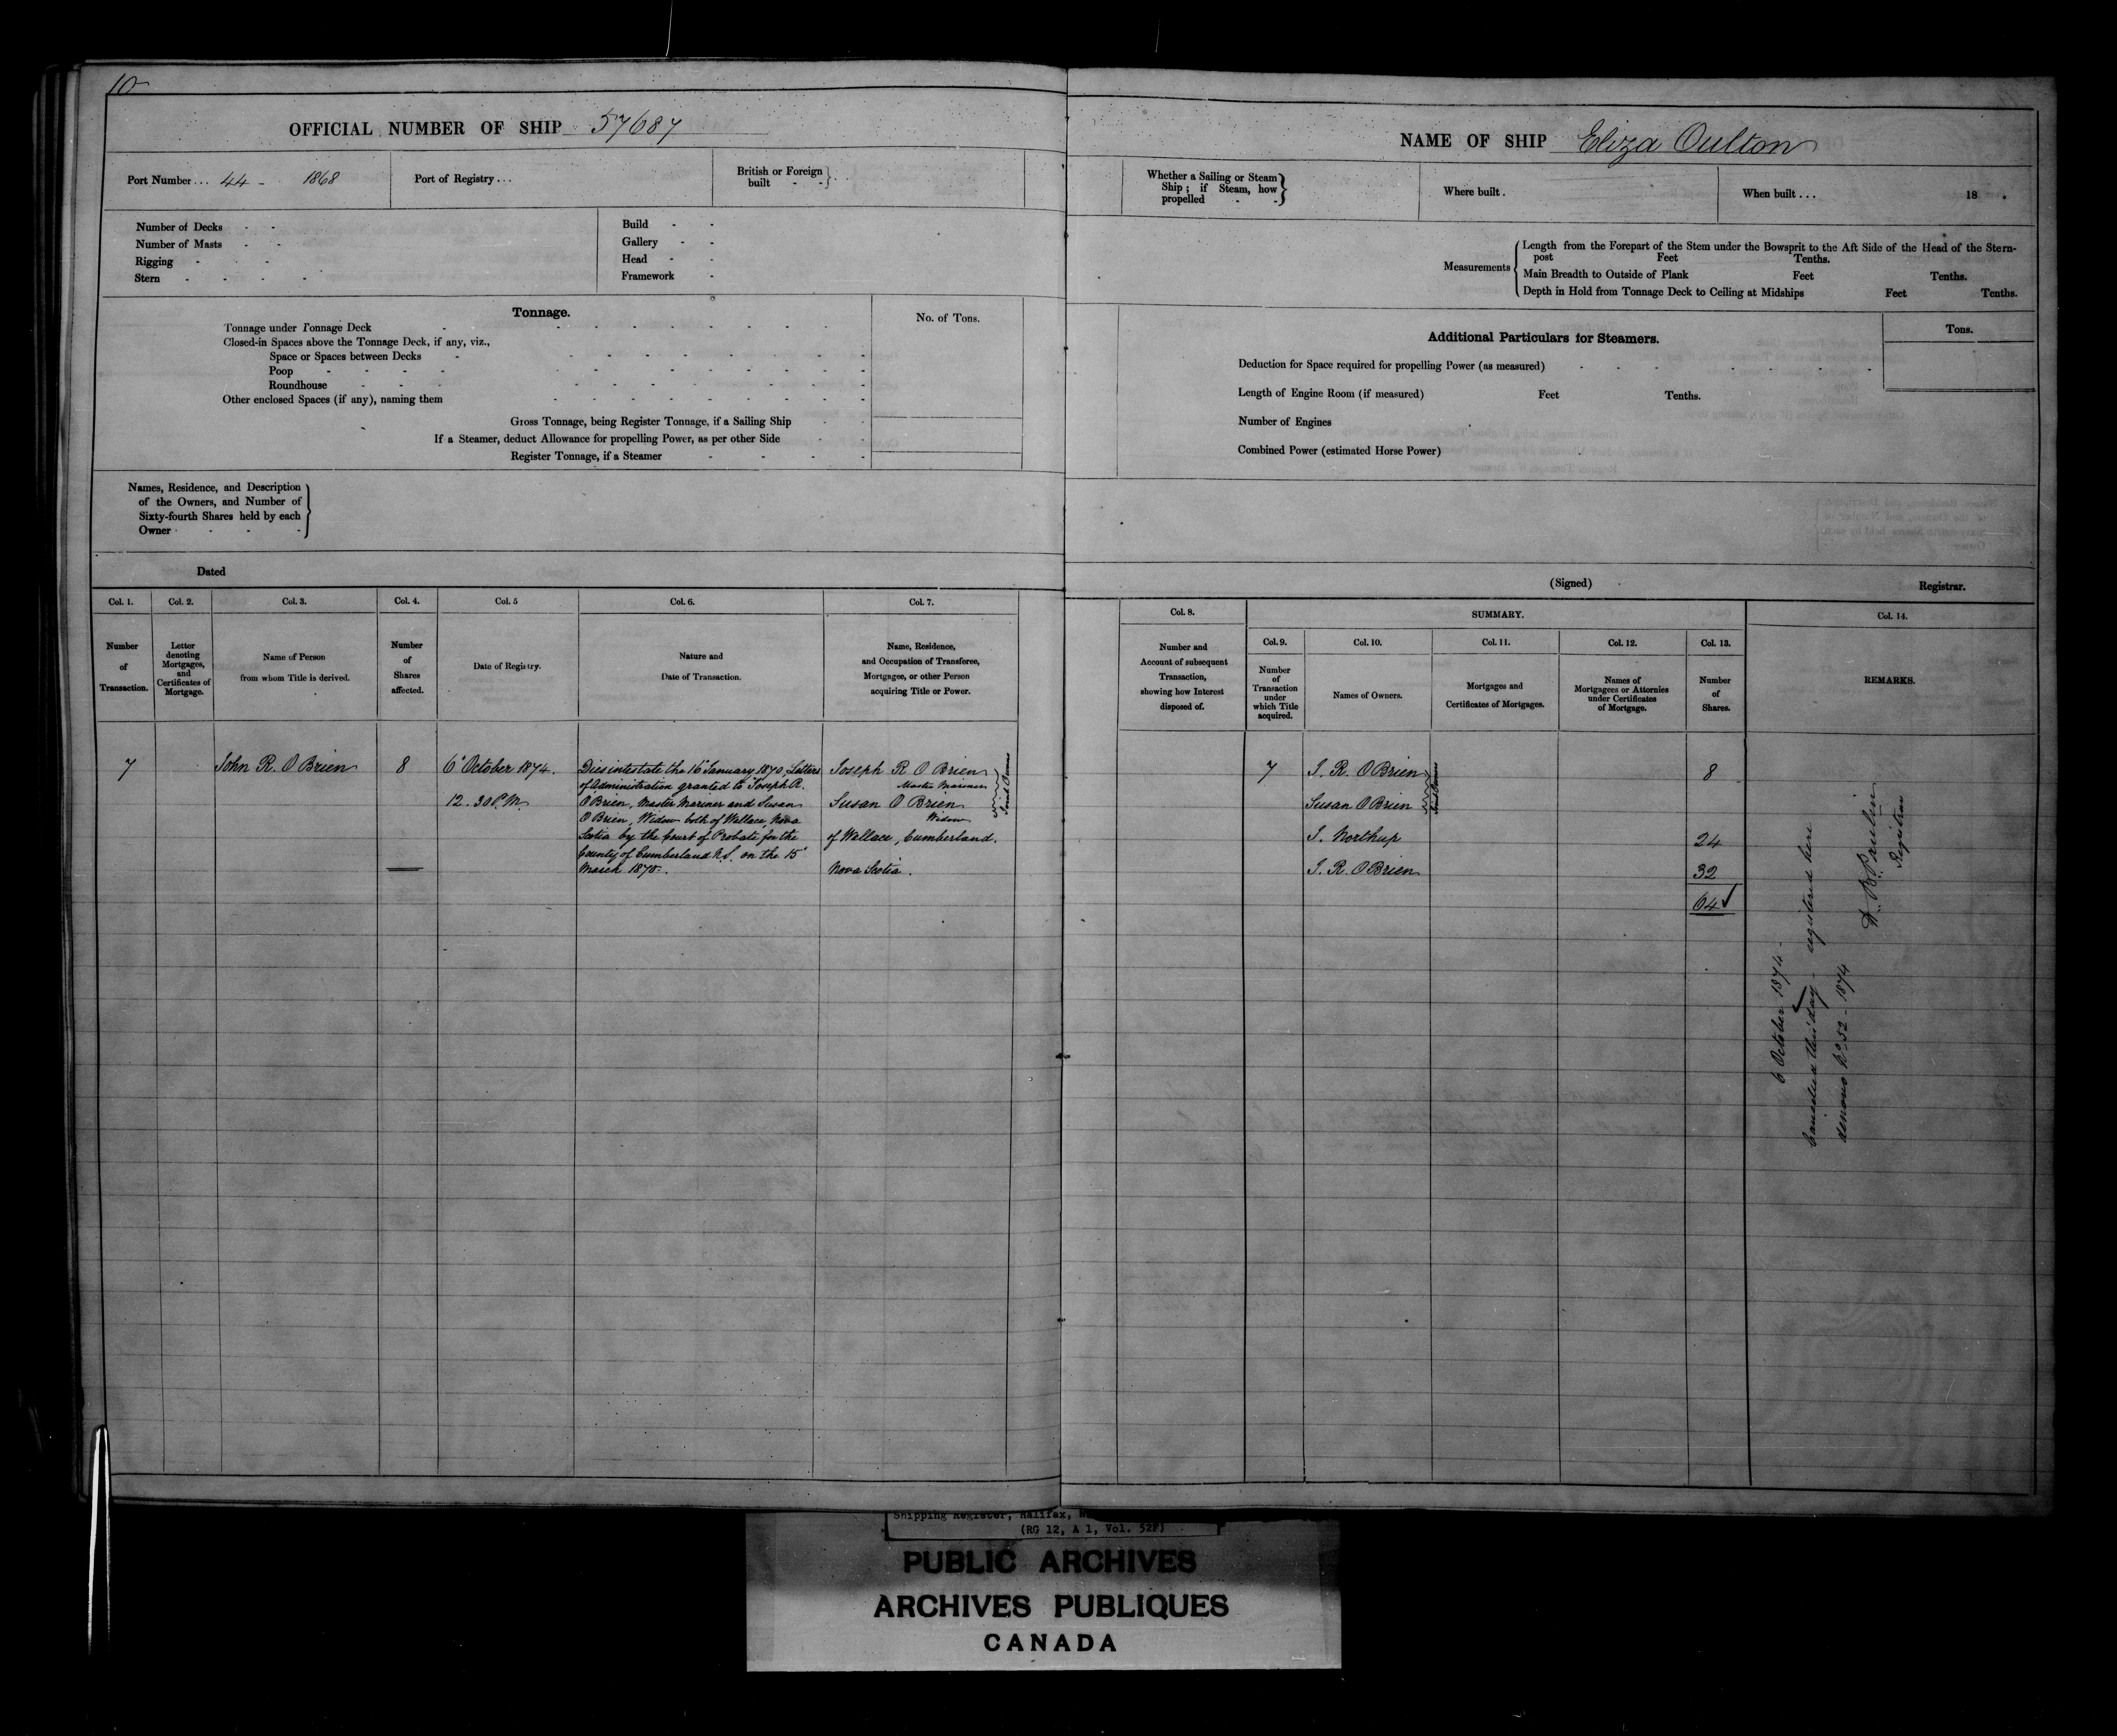 10
OFFICIAL NUMBER OF SHIP 57687
Port Number... 44 - 1868
Port of Registry...
British or Foreign
built - -
Number of Decks - -
Number of Masts - -
Rigging - -
Stern - - - -
Build - -
Gallery - -
Head - -
Framework -
Tonnage.
No. of Tons.
Tonnage under Tonnage Deck
Closed-in Spaces above the Tonnage Deck, if any, viz.,
Space or Spaces between Decks
Poop
Roundhouse
Other enclosed Spaces (if any), naming them
Gross Tonnage, being Register Tonnage, if a Sailing Ship
If a Steamer, deduct Allowance for propelling Power, as per other Side
Register Tonnage, if a Steamer
Names, Residence, and Description
of the Owners, and Number of
Sixty-fourth Shares held by each
Owner
Dated
Col. 1.
Number
of
Transaction.
Col. 2.
Letter
denoting
Mortgages,
and
Certificates of
Mortgage.
Col. 3.
Name of Person
from whom Title is derived.
Col. 4.
Number
of
Shares
affected.
Col. 5
Date of Registry.
Col. 6.
Nature and
Date of Transaction.
Col. 7.
Name, Residence,
and Occupation of Transferee,
Mortgagee, or other Person
acquiring Title or Power.
7
John R. O'Brien
8
6 October 1874.
12.30 P.M.
Dies intestate the 16 January 1870, Letters
of Administration granted to Joseph R.
O'Brien, Master Mariner and Susan
O'Brien, Widow both of Wallace, Nova
Scotia by the Court of Probate for the
County of Cumberland N.S. on the 15
March 1870.
Joseph R O'Brien
Master Mariner
Susan O'Brien
Widow
Joint Owners
of Wallace, Cumberland.
Nova Scotia.
NAME OF SHIP Eliza Oulton
Whether a Sailing or Steam
Ship; if Steam, how
propelled - -
Where built.
When built... 18 .
Measurements
Length from the Forepart of the Stem under the Bowsprit to the Aft Side of the Head of the Stern-
post Feet Tenths.
Main Breadth to Outside of Plank Feet Tenths.
Depth in Hold from Tonnage Deck to Ceiling at Midships Feet Tenths.
Additional Particulars for Steamers.
Tons.
Deduction for Space required for propelling Power (as measured)
Length of Engine Room (if measured) Feet Tenths.
Number of Engines
Combined Power (estimated Horse Power)
(Signed) Registrar.
Col. 8.
Number and
Account of subsequent
Transaction,
showing how Interest
disposed of.
SUMMARY.
Col. 9.
Number
of
Transaction
under
which Title
acquired.
Col. 10.
Names of Owners.
Col. 11.
Mortgages and
Certificates of Mortgages.
Col. 12.
Names of
Mortgagees or Attornies
under Certificates
of Mortgage.
Col. 13.
Number
of
Shares.
Col. 14.
REMARKS.
7 J. R. O'Brien 8
Susan O'Brien
Joint Owners
J. Northup 24
J. R. O'Brien 32
64
6 October 1874 -
Cancelled this day - registered here
denovo No 52 - 1874
Registrar
Shipping Register, Halifax,
(RG 12, A 1, Vol. 52F)
PUBLIC ARCHIVES
ARCHIVES PUBLIQUES
CANADA